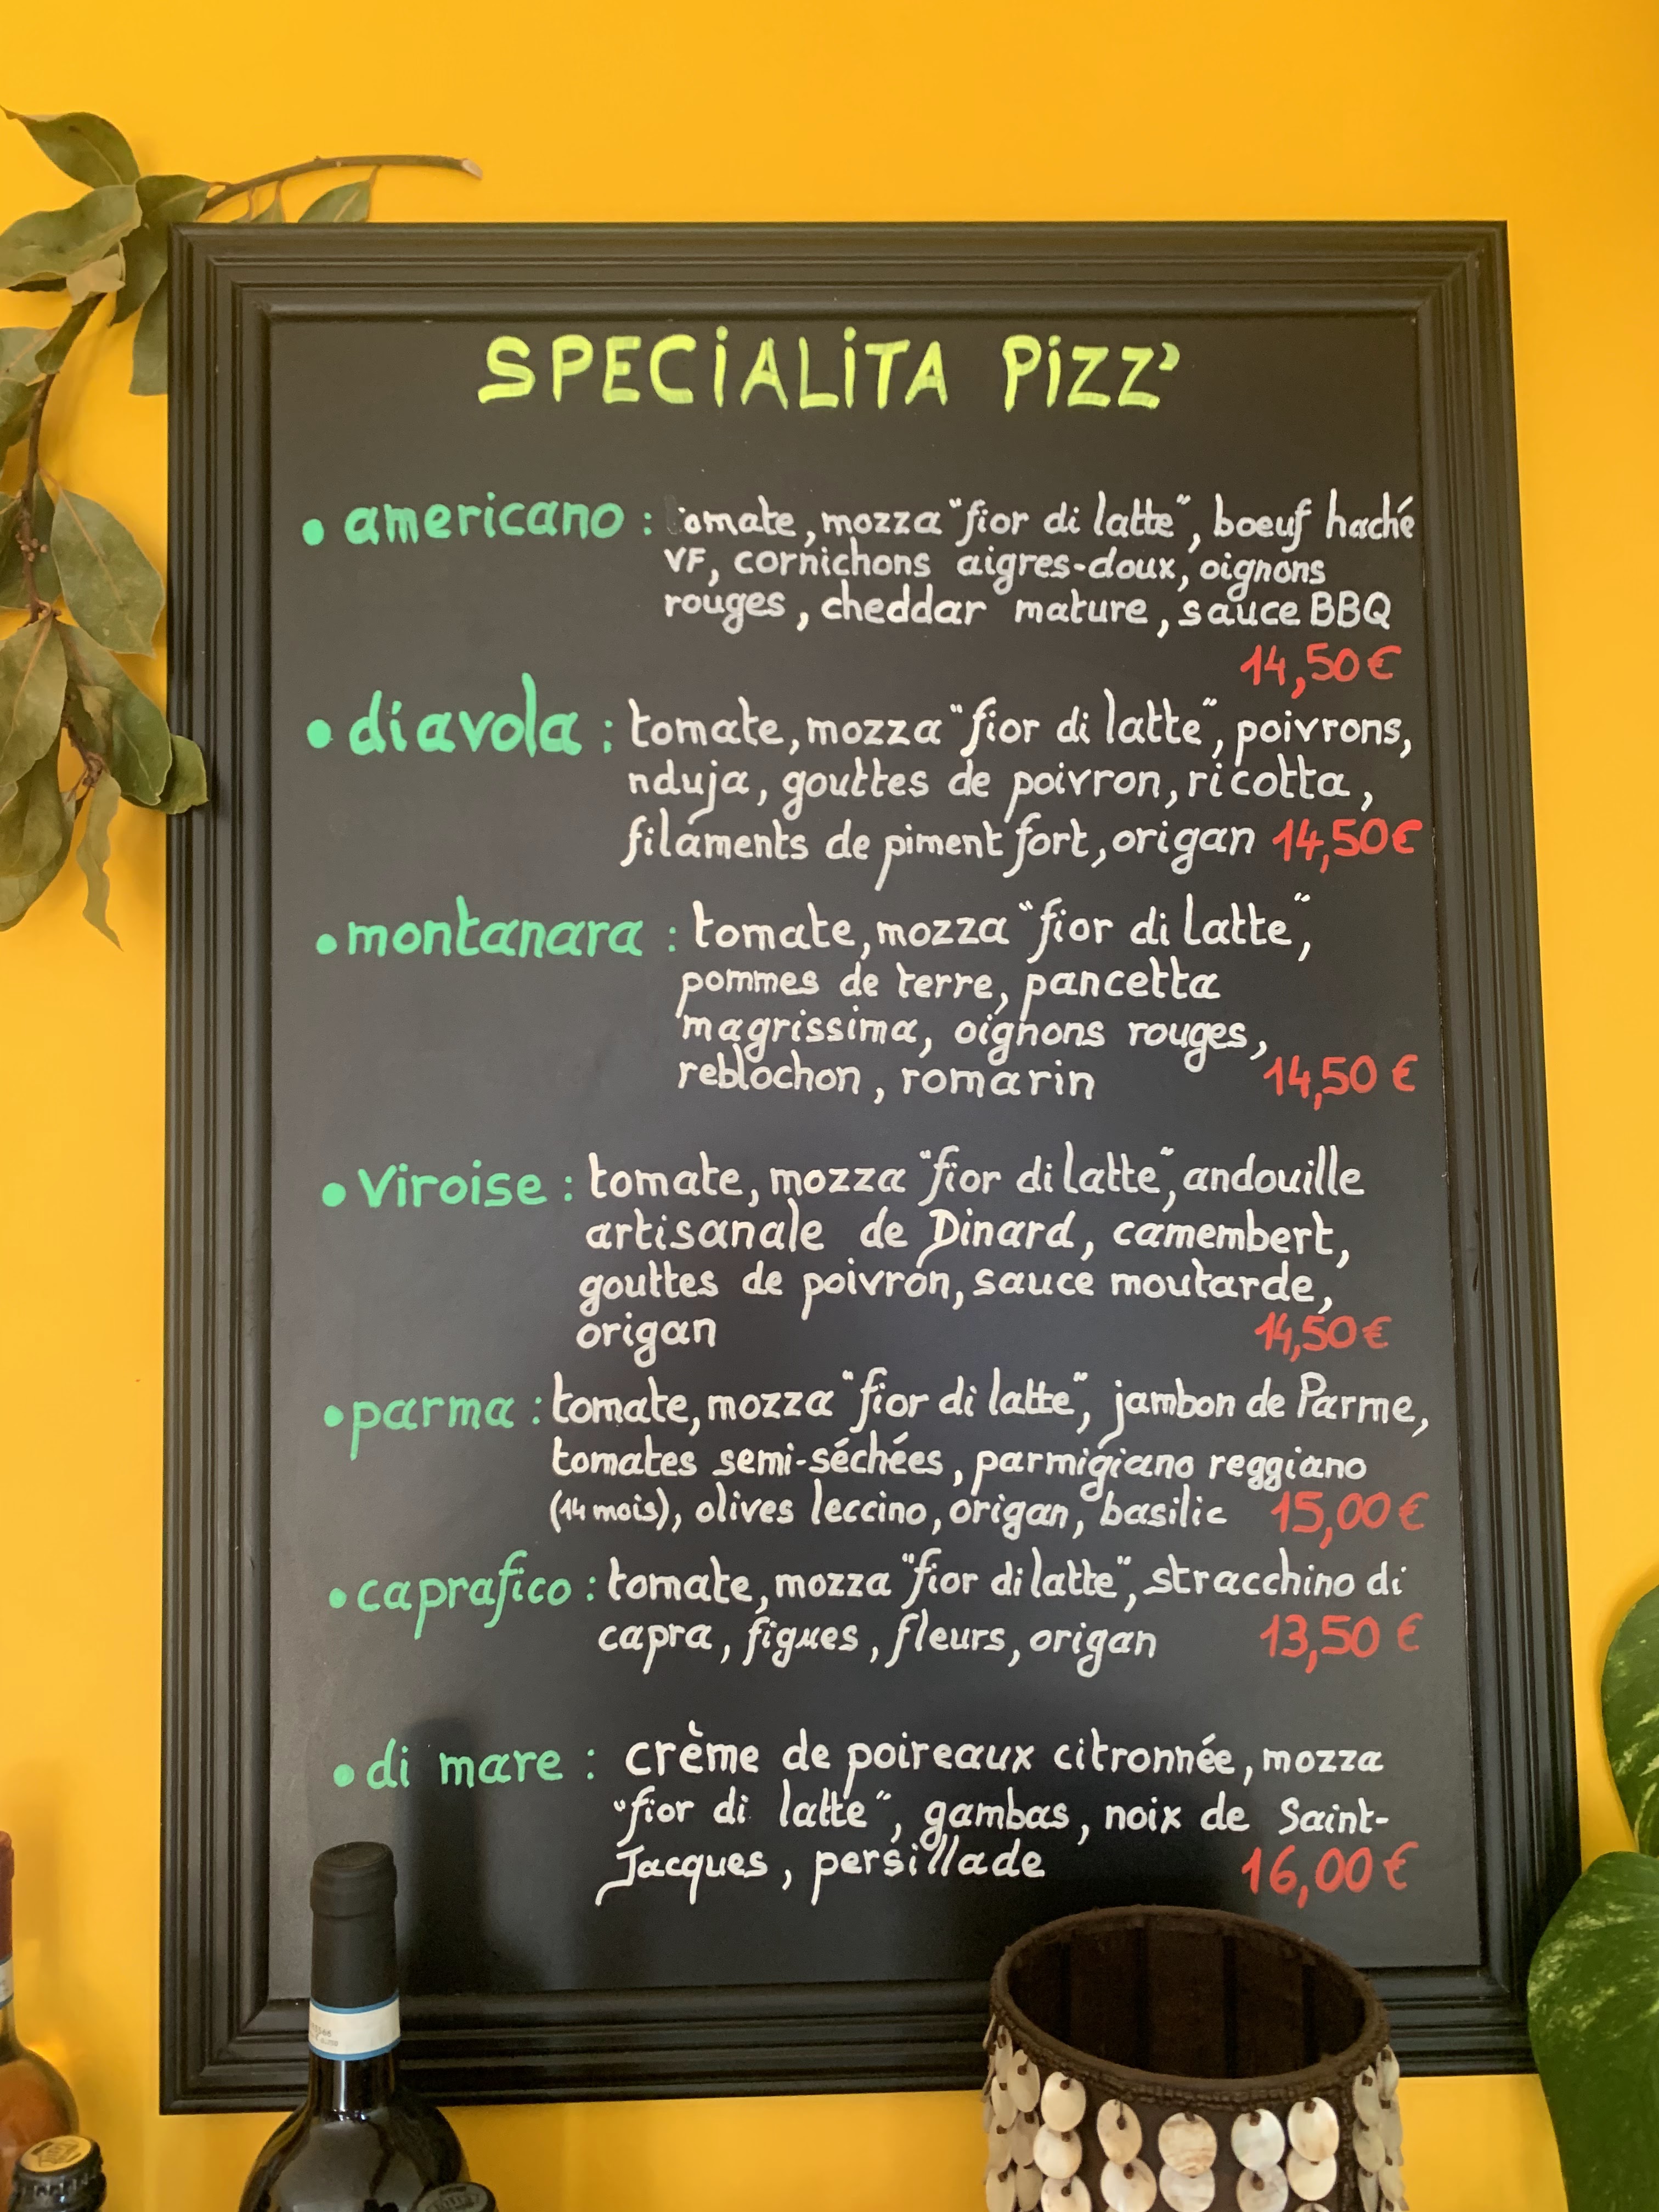 SPECiALiTA PiZZ'
• americano : tomate, mozza "fior di latte", boeuf haché
VF, cornichons aigres-doux, oignons
rouges, cheddar mature, sauce BBQ
14,50€
• diavola : tomate, mozza "fior di latte", poivrons,
nduja, gouttes de poivron, ricotta,
filaments de piment fort, origan 14,50€
• montanara : tomate, mozza "fior di latte",
pommes de terre, pancetta
magrissima, oignons rouges,
reblochon, romarin 14,50 €
• Viroise : tomate, mozza "fior di latte", andouille
artisanale de Dinard, camembert,
gouttes de poivron, sauce moutarde,
origan 14,50€
• parma : tomate, mozza "fior di latte", jambon de Parme,
tomates semi-séchées, parmigiano reggiano
(14 mois), olives leccino, origan, basilic 15,00€
• caprafico : tomate, mozza "fior di latte", stracchino di
capra, figues, fleurs, origan 13,50 €
• di mare : crème de poireaux citronnée, mozza
"fior di latte", gambas, noix de Saint-
Jacques, persillade 16,00€